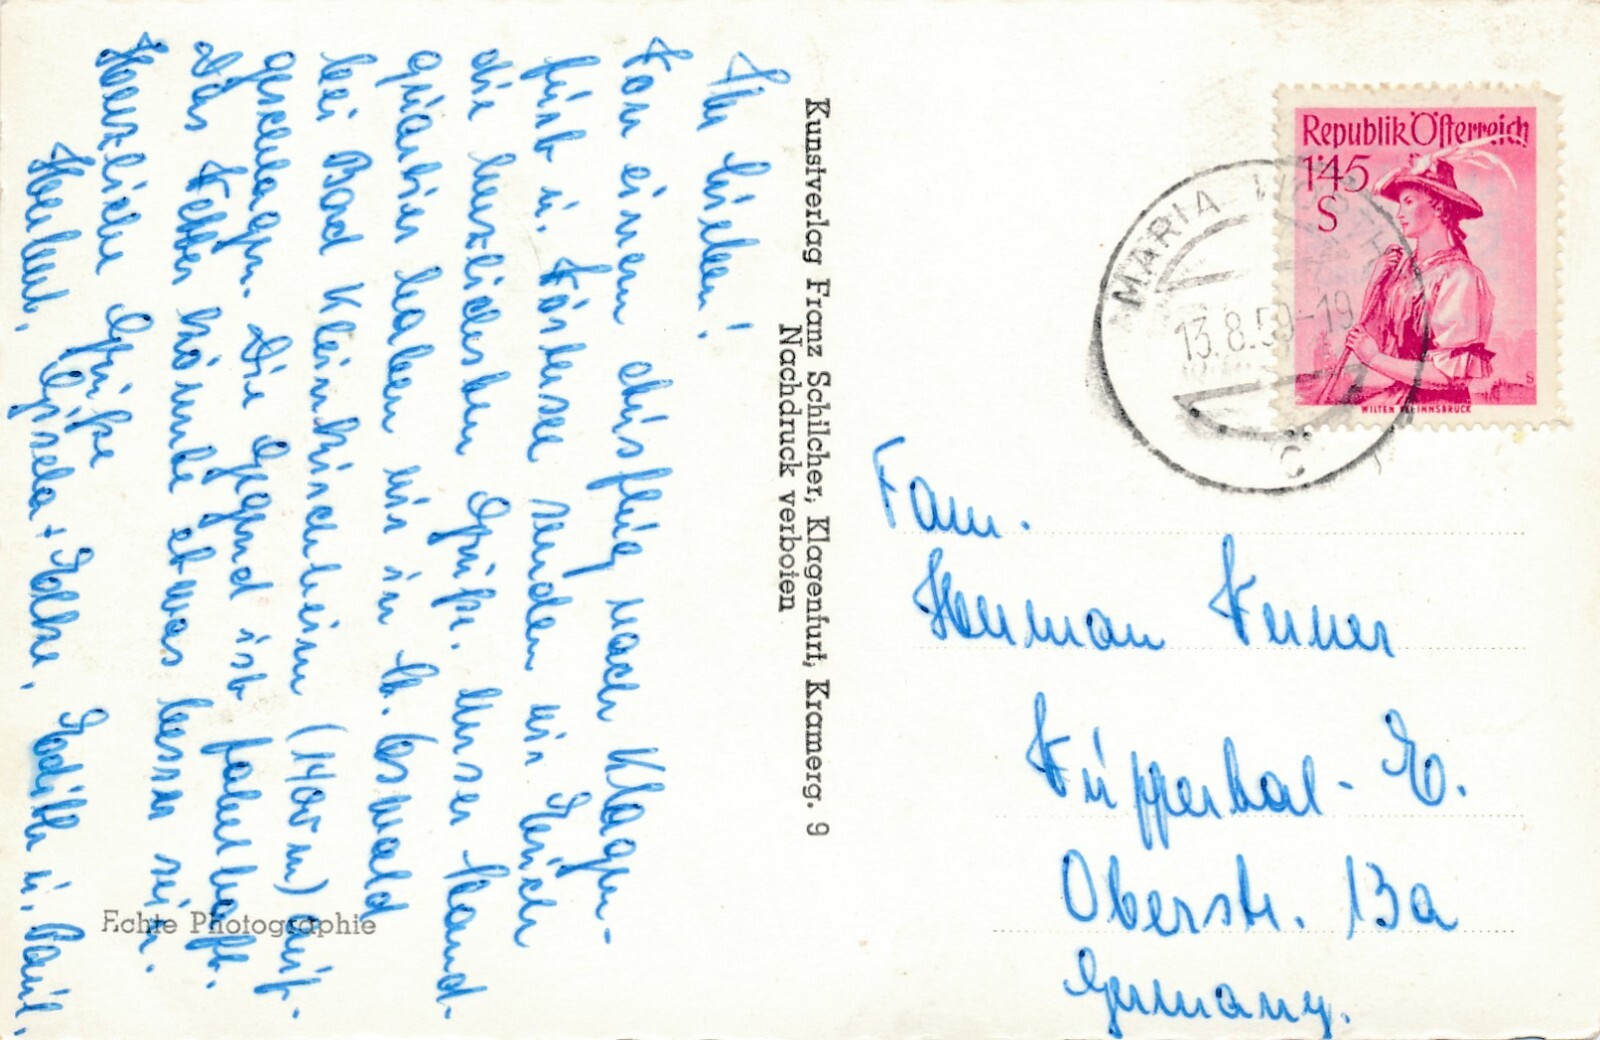 Ihr Lieben!
Von einem Ausflug nach Klagen-
furt u. Wörtersee senden wir Euch
die herzlichsten Grüße. Unser Stand-
quartier haben wir in St. Oswald
bei Bad Kleinkirchheim (1400 m) auf-
geschlagen. Die Gegend ist fabelhaft.
Das Wetter könnte etwas besser sein.
Herzliche Grüße
Herbert, Gisela + Elke, Edith u. Paul.
Kunstverlag Franz Schilcher, Klagenfurt, Kramerg. 9
Nachdruck verboten
Echte Photographie
Republik Österreich
1'45
S
WILTEN BEI INNSBRUCK
MARIA WÖRTH
13.8.59-19
C
Fam.
Herman Werner
Wuppertal - E.
Oberstr. 13a
Germany.